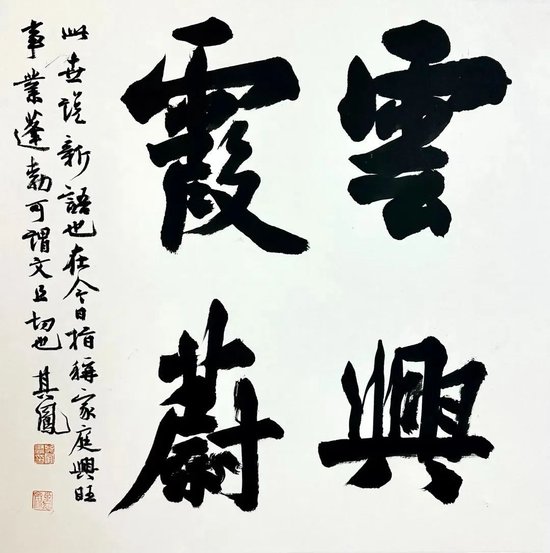 雲興
霞蔚
此世說新語也在今日指稱家庭興旺
事業蓬勃可謂文且切也 其鳳